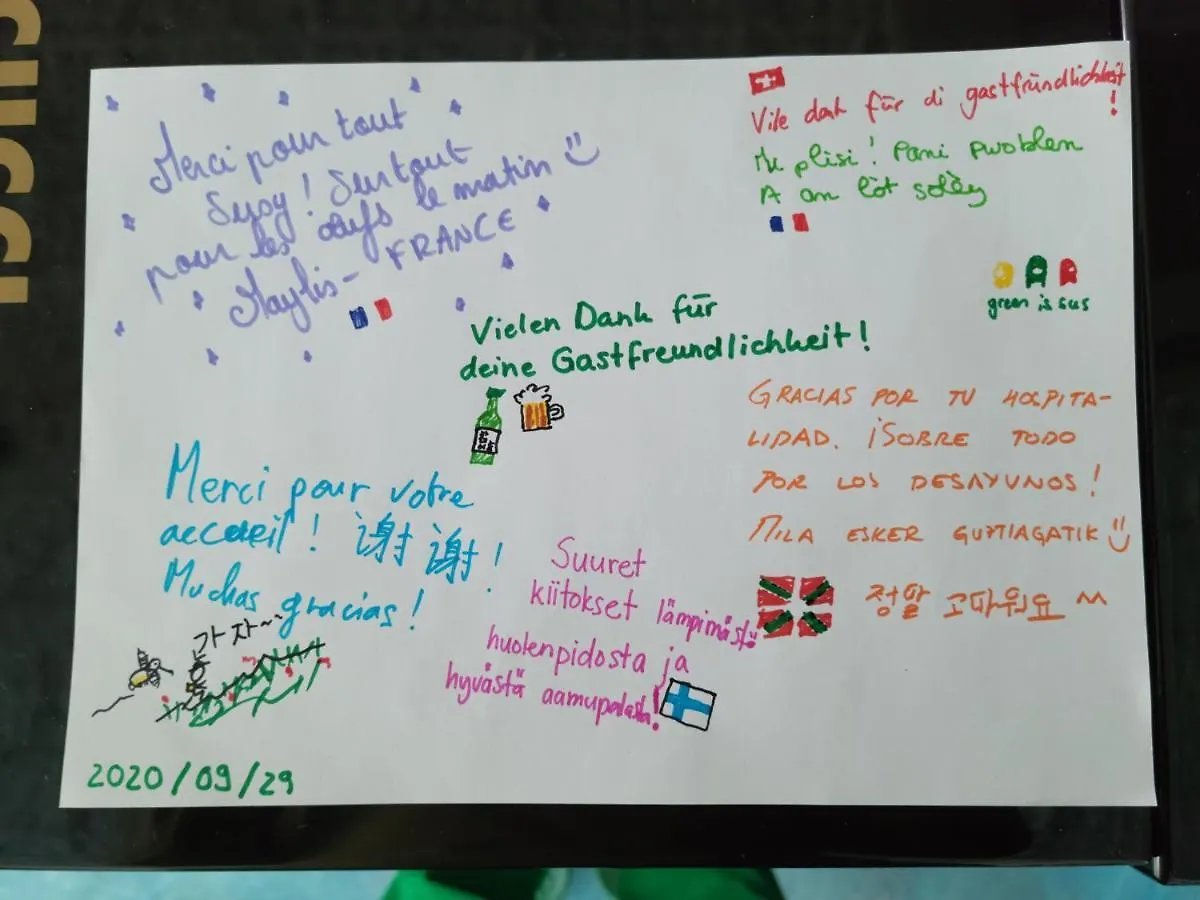 Merci pour tout
Susy! Surtout
pour les œufs le matin
Maylis - FRANCE
Vile dank für di gastfründlichkeit!
Mu plisi! Pani pwoblem
A an lòt solèy
green is sus
Vielen Dank für
deine Gastfreundlichkeit!
GRACIAS POR TU HOSPITA-
LIDAD. ¡SOBRE TODO
POR LOS DESAYUNOS!
MILA ESKER GUZTIAGATIK
정말 고마워요 ^^
Merci pour votre
accueil! 谢谢!
Muchas gracias!
가자~
Suuret
kiitokset lämpimästä
huolenpidosta ja
hyvästä aamupalasta!
2020/09/29